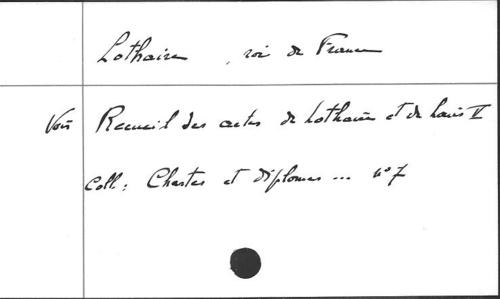 Lothaire , roi de France
Voir Recueil des actes de Lothaire et de Louis V
Coll : Chartes et diplomes ... n° 7